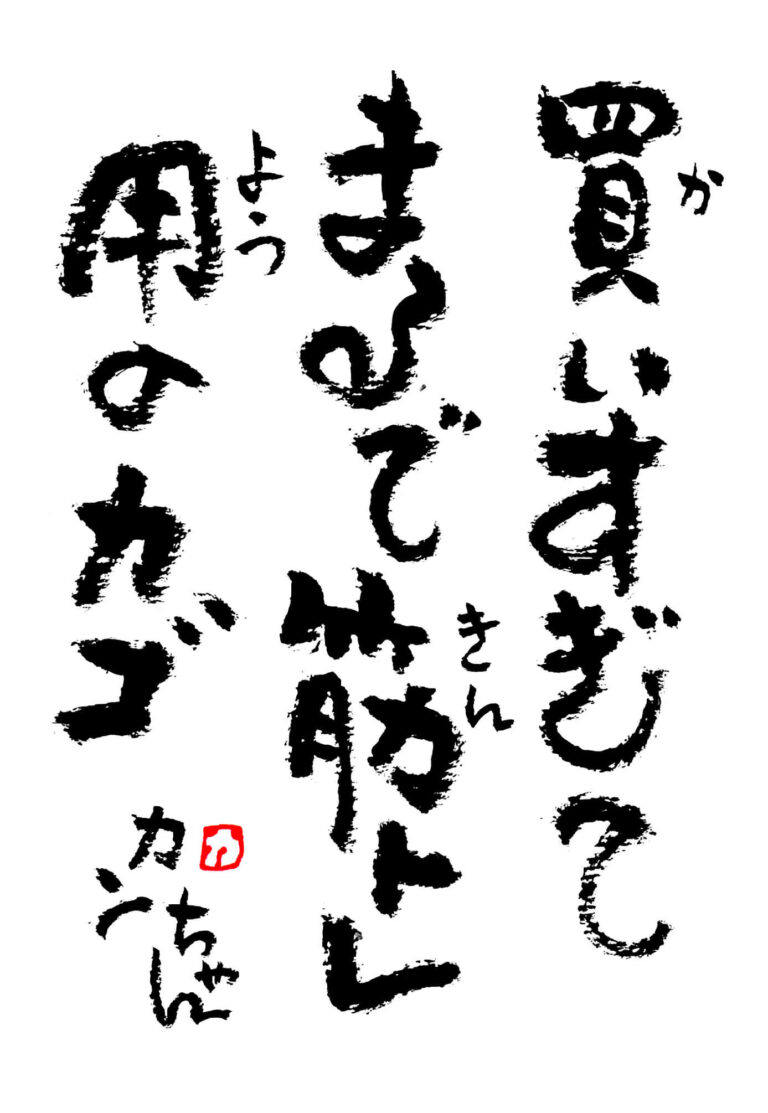 買いすぎて
か
まるで筋トレ
きん
用のカゴ
よう
カンちゃん
カ